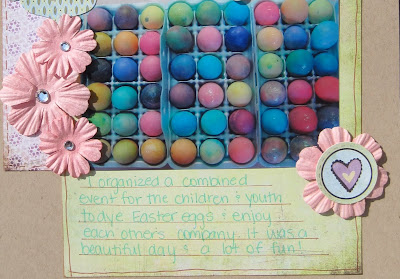 "I organized a combined
event for the children & youth
to dye Easter eggs & enjoy
each others company. It was a
beautiful day & a lot of fun!